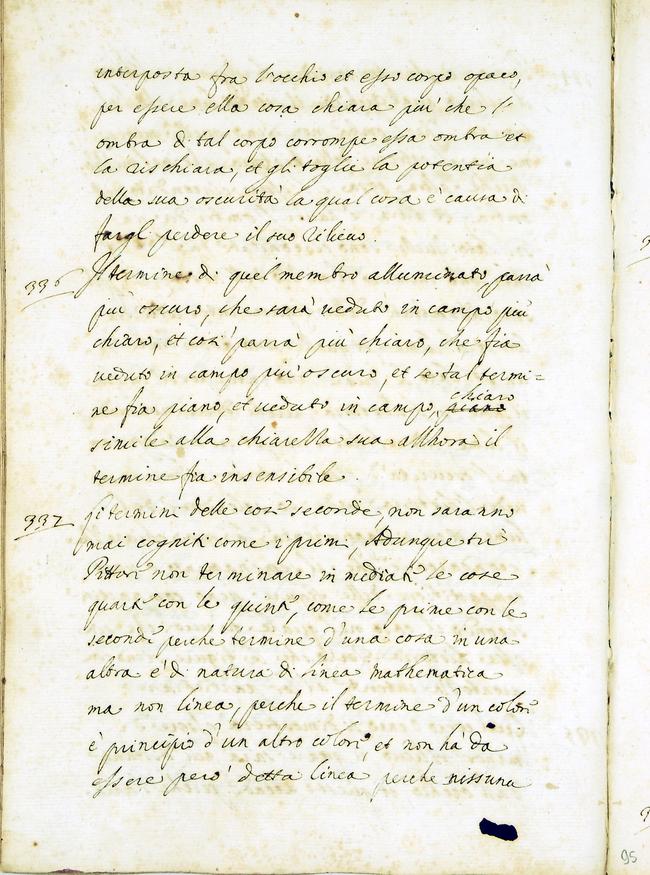 interposta fra l'occhio et esso corpo opaco,
per essere ella cosa chiara piu' che l'
ombra di tal corpo corrompe essa ombra et
la rischiara, et gli toglie la potentia
della sua oscurità la qual cosa è causa di
fargl perdere il suo rilieuo.
336 Il termine di quel membro alluminato, parrà
più oscuro, che sarà ueduto in campo più
chiaro, et cosi parrà più chiaro, che fia
ueduto in campo piu' oscuro, et se tal termi=
ne fia piano, et ueduto in campo, chiaro
simile alla chiarezza sua allhora il
termine fia insensibile.
337 Gi termini delle cose seconde, non saranno
mai cogniti come i primi, Adunque tù
Pittore non terminare in mediate le cose
quarte con le quinte, come le prime con le
seconde perche termine d'una cosa in una
altra è di natura di linea mathematica
ma non linea, perche il termine d'un colore
è principio d'un altro colore, et non hà da
essere però detta linea, perche nissuna
95